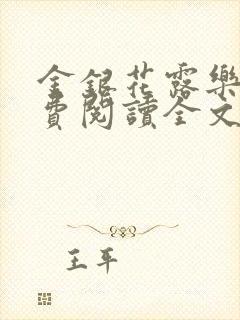 金銀花露樂
費閱讀全文
王平